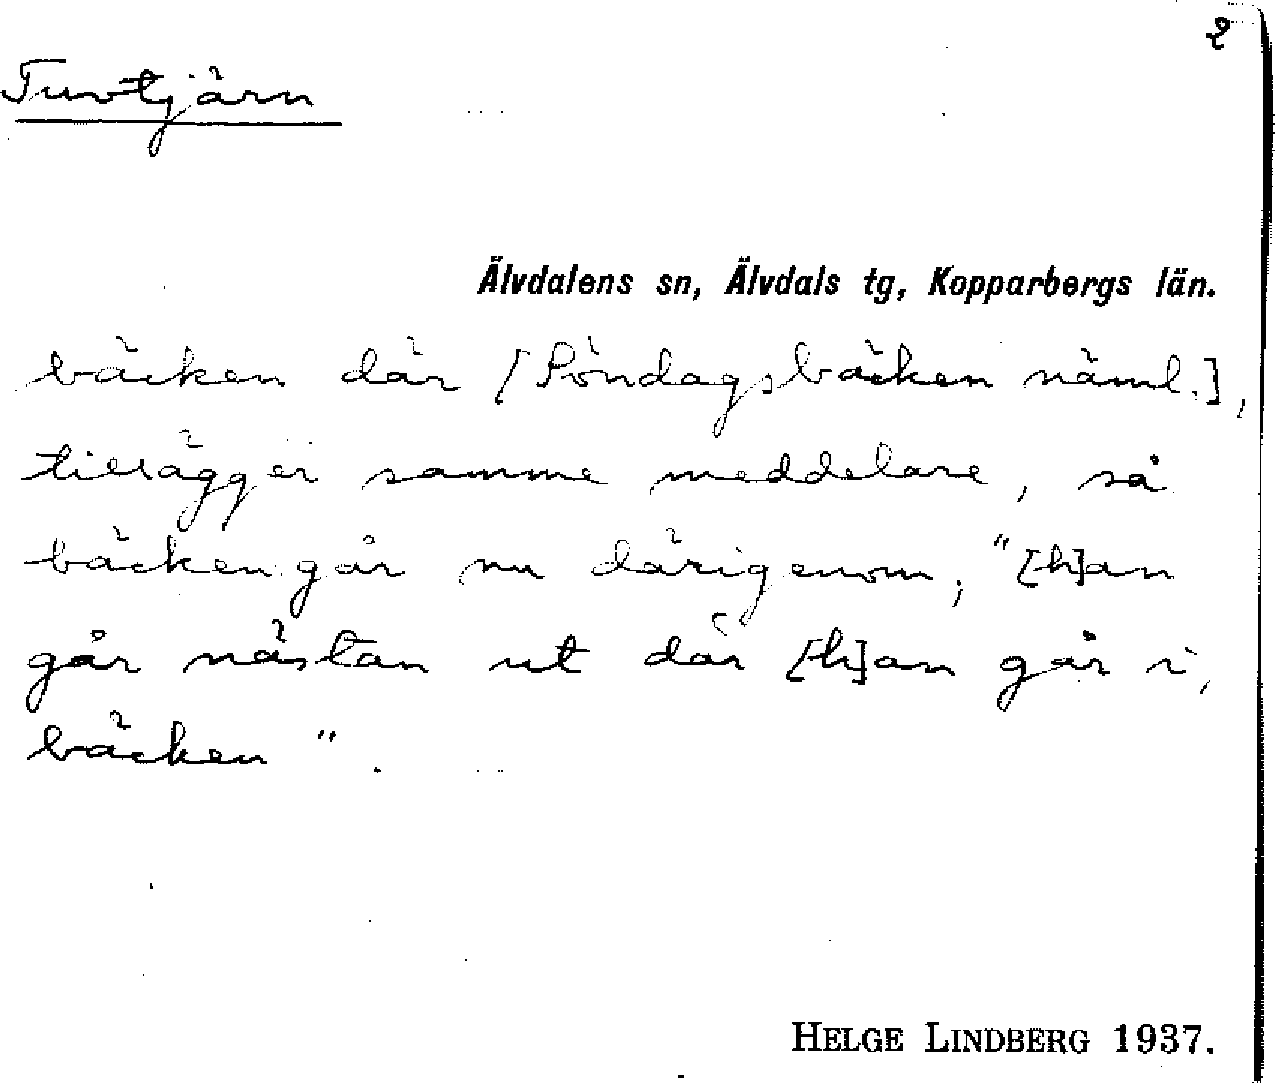 2
Tuvtjärn
Älvdalens sn, Älvdals tg, Kopparbergs län.
bäcken där [Pöndagsbäcken näml.],
tillägger samme meddelare, så
bäcken går nu därigenom, "[h]an
går nästan ut där [h]an går i,
bäcken".
HELGE LINDBERG 1937.